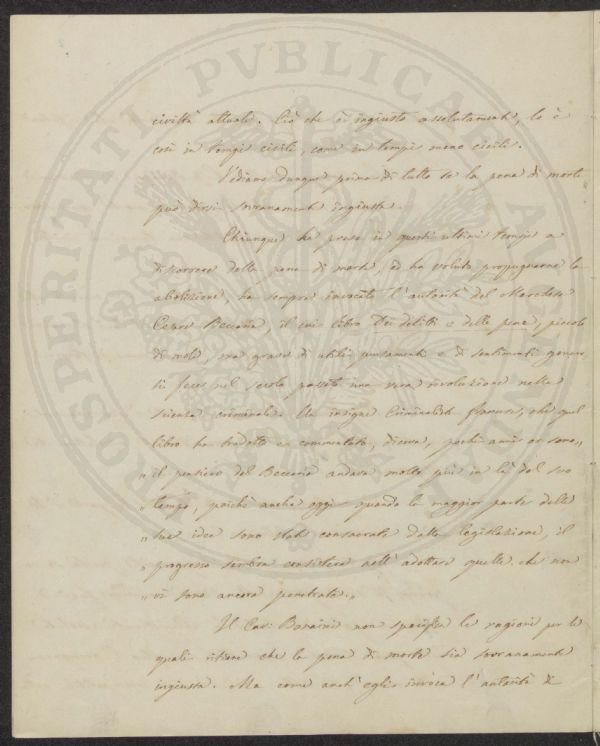 PROSPERITATI PVBLICAE AVGENDAE
civiltà attuale. Ciò che è ingiusto assolutamente, lo è
così in tempi civili, come in tempi meno civili.
Vediamo dunque prima di tutto se la pena di morte
può dirsi sovranamente ingiusta.
Chiunque ha preso in questi ultimi tempi a
discorrere della pena di morte, ed ha voluto propugnarne la
abolizione, ha sempre invocato l'autorità del Marchese
Cesare Beccaria, il cui libro Dei delitti e delle pene, piccolo
di mole, ma grave di utili pensamenti e di sentimenti genero-
si fece nel secolo passato una vera rivoluzione nella
scienza criminale. Un insigne Criminalista francese, che quel
libro ha tradotto e commentato, diceva, pochi anni or sono,,
,, il pensiero del Beccaria andava molto più in là del suo
,, tempo, poichè anche oggi quando la maggior parte delle
,, sue idee sono state consacrate dalla legislazione, il
,, progresso sembra consistere nell'adottare quelle che non
,, vi sono ancora penetrate.,,
Il Cav. Bonaini non specifica le ragioni per le
quali ritiene che la pena di morte sia sovranamente
ingiusta. Ma come anch'egli invoca l'autorità di